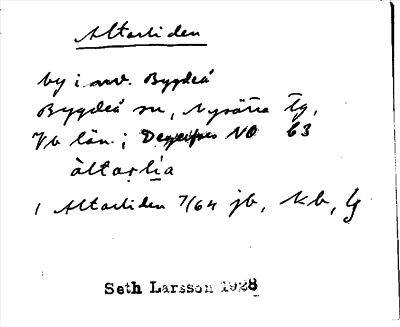 Altarliden
by i nv. Bygdeå
Bygdeå sn, Nysätra tg,
Vb län; NO 63
àltarlìa
1 Altarliden 7/64 jb, kb, lg
Seth Larsson 1928